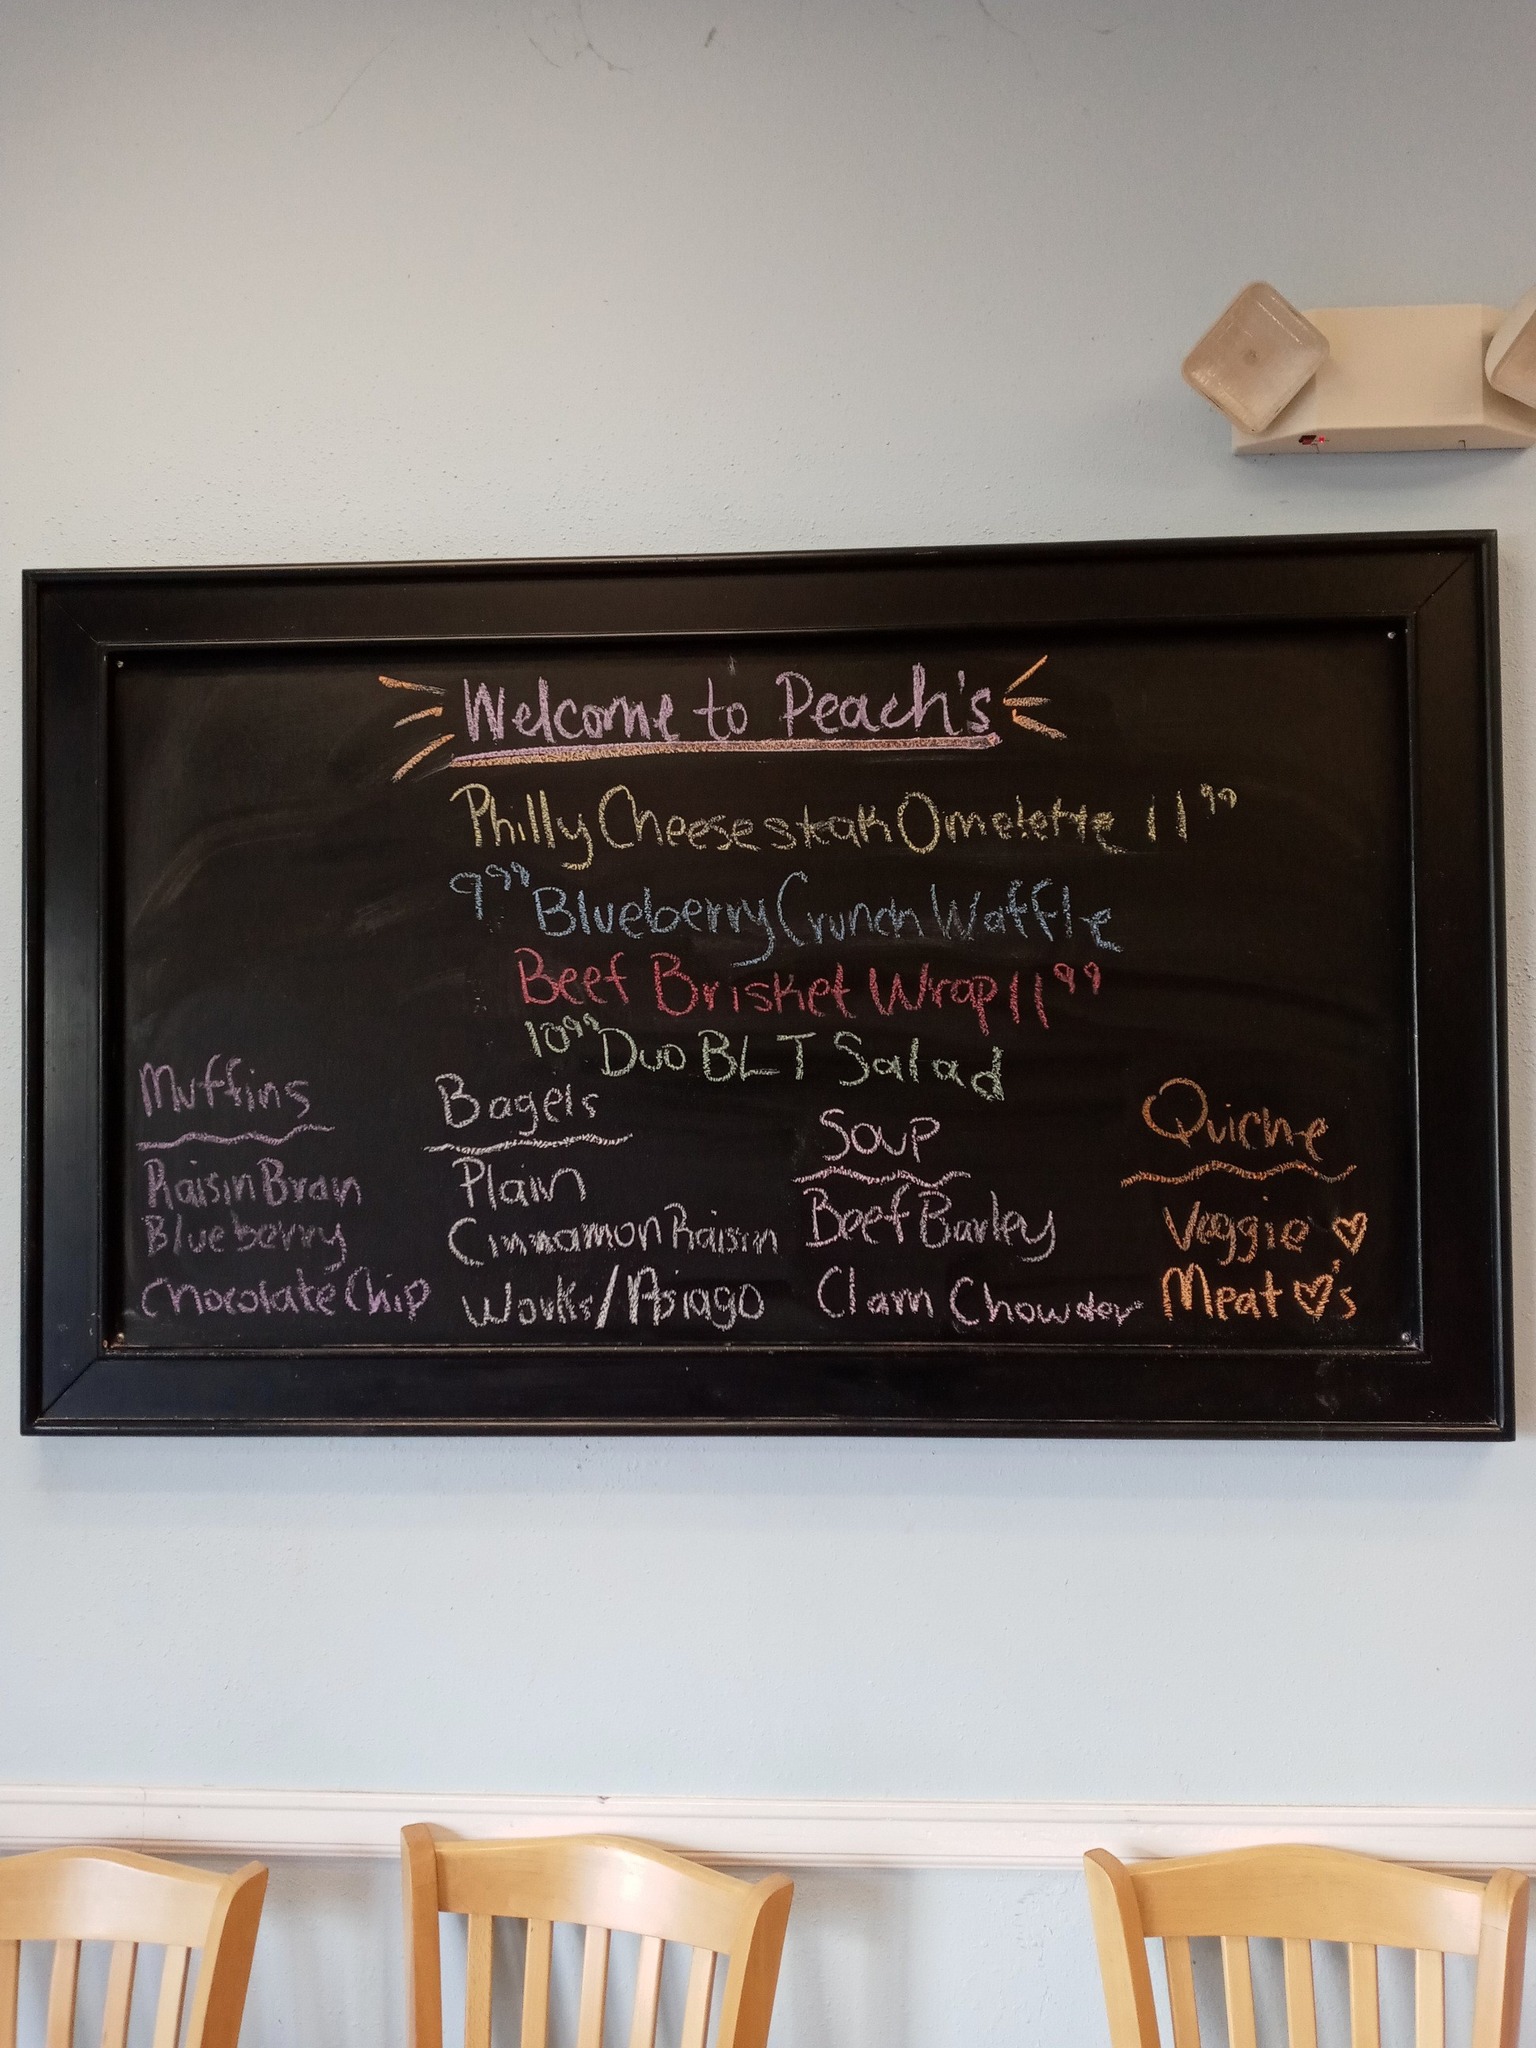 Welcome to Peach's
Philly Cheesesteak Omelette 11⁹⁹
9⁹⁹ Blueberry Crunch Waffle
Beef Brisket Wrap 11⁹⁹
10⁹⁹ Duo BLT Salad
Muffins
Raisin Bran
Blueberry
Chocolate Chip
Bagels
Plain
Cinnamon Raisin
Works/Asiago
Soup
Beef Barley
Clam Chowder
Quiche
Veggie ♡
Meat ♡'s